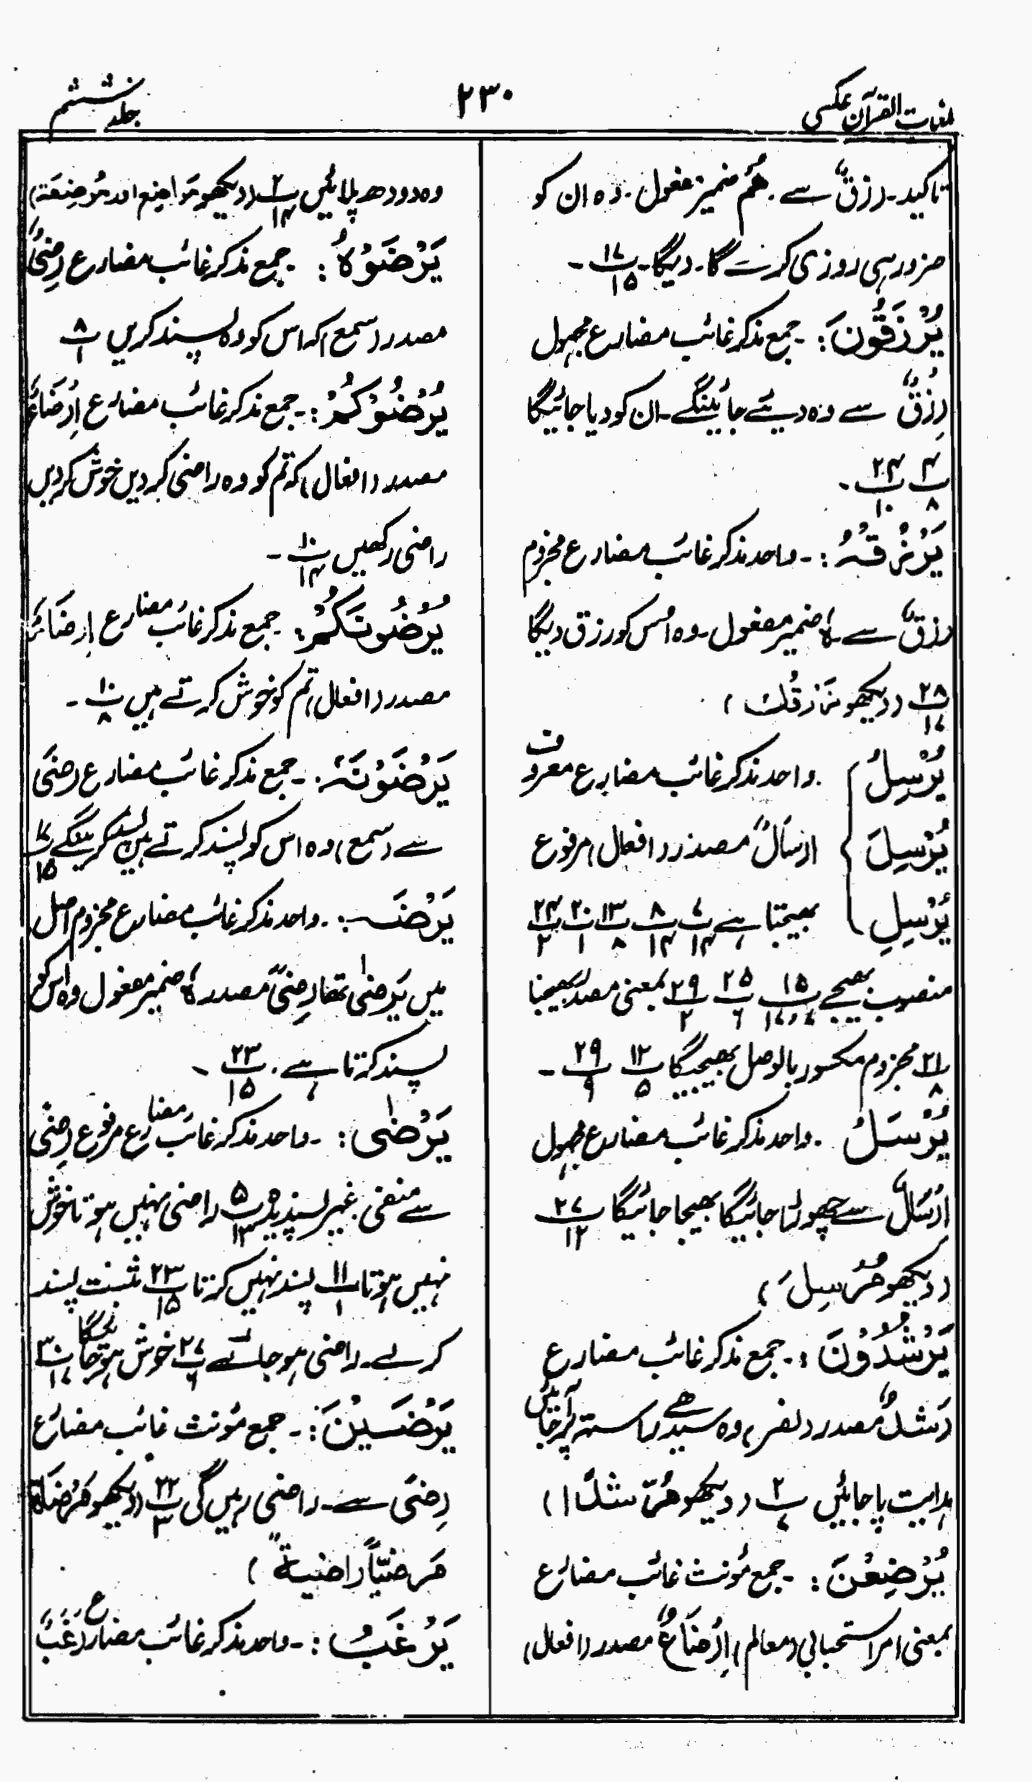 لغات القرآن عکسی
۲۳۰
جلد ششم
تاکید۔ رزقٌ سے۔ ھُم ضمیر مفعول۔ وہ ان کو
ضرور ہی روزی کرے گا۔ دیگا۔ ۱۷/۱۵ ۔
یُرْزَقُونَ: ۔ جمع مذکر غائب مضارع مجہول
رِزْقٌ سے وہ دیئے جائینگے۔ ان کو دیا جائیگا
۴/۸ ۲۴/۱۰ ۔
یَرْزُقْہُ: ۔ واحد مذکر غائب مضارع مجزوم
رزقٌ سے۔ ہٗ ضمیر مفعول۔ وہ اُس کو رزق دیگا
۲۸/۱۷ (دیکھو نَرْزُقُكَ)
یُرْسِلُ واحد مذکر غائب مضارع معروف
یُرْسِلَ اِرْسَالٌ مصدر (افعال) مرفوع
یُرْسِلِ بھیجتا ہے ۷/۱۴ ۸/۱۴ ۱۳/۸ ۲۰/۱ ۲۴/۲
منصوب بھیجے ۱۵/۷،۱۷ ۲۵/۶ ۲۹/۲ بمعنی مصدر بھیجنا
۲۱/۸ مجزوم مکسور بالوصل بھیجیگا ۱۲/۵ ۲۹/۹ ۔
یُرْسَلُ ۔ واحد مذکر غائب مضارع مجہول
اِرْسَالٌ سے چھوڑا جائیگا بھیجا جائیگا ۲۷/۱۲
(دیکھو مُرْسِلَ)
یَرْشُدُوْنَ: ۔ جمع مذکر غائب مضارع
رَشْدٌ مصدر (نصر) وہ سیدھے راستہ پر آجائیں
ہدایت پا جائیں ۲/۷ (دیکھو مُرْشِدًا)
یُرْضِعْنَ: ۔ جمع مؤنث غائب مضارع
بمعنی امر استحبابی (معالم) اِرْضَاعٌ مصدر (افعال)
وہ دودھ پلائیں ۲/۱۴ (دیکھو مَرَاضِع اور مُرْضِعَة)
یَرْضَوْہُ: ۔ جمع مذکر غائب مضارع رِضًی
مصدر (سمع) کہ اس کو وہ پسند کریں ۸/۱
یُرْضُوْکُمْ: ۔ جمع مذکر غائب مضارع اِرْضَاءٌ
مصدر (افعال) کہ تم کو وہ راضی کر دیں خوش کر دیں
راضی رکھیں ۱۰/۱۴ ۔
یُرْضُوْنَکُمْ: جمع مذکر غائب مضارع اِرضَاءٌ
مصدر (افعال) تم کو خوش کرتے ہیں ۱۰/۸ ۔
یَرْضَوْنَہٗ: ۔ جمع مذکر غائب مضارع رِضًی
سے (سمع) وہ اس کو پسند کرتے ہیں پسند کرینگے ۱۷/۱۵
یَرْضَہُ: ۔ واحد مذکر غائب مضارع مجزوم اصل
میں یَرضٰی تھا رِضًی مصدر ہٗ ضمیر مفعول وہ اس کو
پسند کرتا ہے۔ ۲۳/۱۵ ۔
یَرْضٰی: ۔ واحد مذکر غائب مضارع مرفوع رِضًی
سے منفی غیر پسندیدہ ۵/۱۳ راضی نہیں ہوتا خوش
نہیں ہوتا ۱۱/۱ پسند نہیں کرتا ۲۳/۱۵ مثبت پسند
کرے۔ راضی ہو جائے ۲۷/۶ خوش ہو جائیگا ۳۰/۱۷
یَرْضَیْنَ: ۔ جمع مؤنث غائب مضارع
رِضًی سے۔ راضی رہیں گی ۲۲/۳ (دیکھو مَرْضَاة
مَرضِیًّا رَاضِیة)
یَرْغَبُ: ۔ واحد مذکر غائب مضارع رَغَبٌ